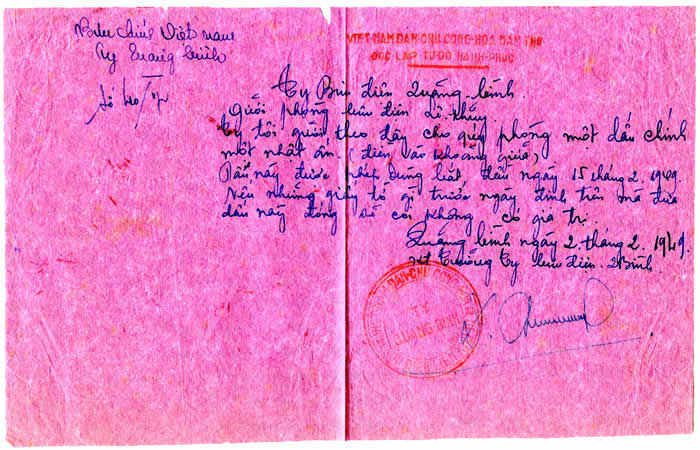 Bưu chính Việt nam
Ty Quảng bình
VIỆT-NAM DÂN CHỦ CỘNG-HÒA DÂN THỨ
ĐỘC-LẬP TỰ-DO HẠNH-PHÚC
Ty Bưu điện Quảng-bình
gửi phòng bưu điện Lê thủy
Ty tôi gửi theo đây cho quý phòng một dấu chính
một nhật ấn. (điền vào khoảng giữa)
Dấu này được phép dùng bắt đầu ngày 15 tháng 2. 1949.
Nếu những giấy tờ gì trước ngày định trên mà đưa
dấu này đóng sẽ coi không có giá trị.
Quảng bình ngày 2. tháng 2. 1949.
Trưởng Ty bưu điện. QBình.
DÂN-CHỦ CỘNG-HÒA
QUẢNG BÌNH